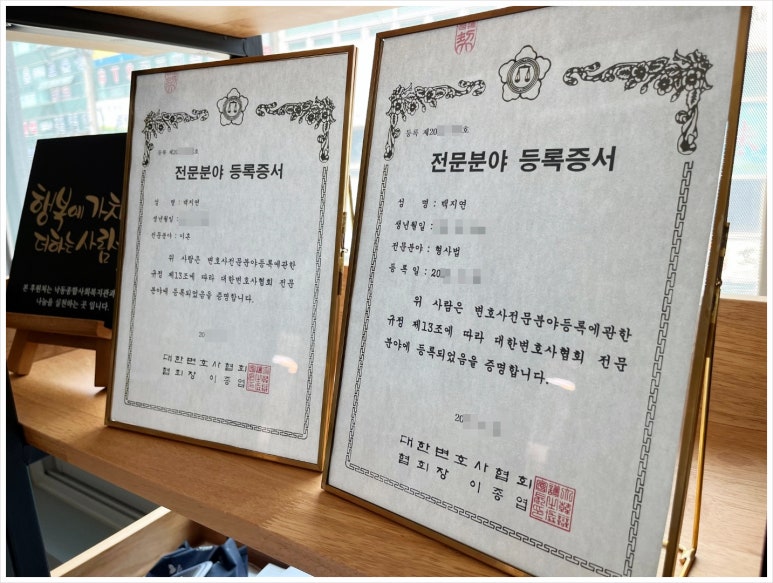 행복에 가치
더하는 사람
본 후원처는 낙동종합사회복지관과
나눔을 실천하는 곳 입니다.
등록 제20 호
전문분야 등록증서
성 명 : 백지연
생년월일 :
전문분야 : 이혼
위 사람은 변호사전문분야등록에관한
규정 제13조에 따라 대한변호사협회 전문
분야에 등록되었음을 증명합니다.
20
대한변호사협회
협회장 이종엽
등록 제20 호
전문분야 등록증서
성 명 : 백지연
생년월일 :
전문분야 : 형사법
등 록 일 : 20
위 사람은 변호사전문분야등록에관한
규정 제13조에 따라 대한변호사협회 전문
분야에 등록되었음을 증명합니다.
20
대한변호사협회
협회장 이종엽